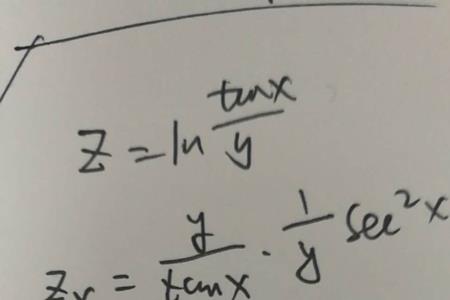 z = ln tanx/y
zx = y/tanx · 1/y sec²x